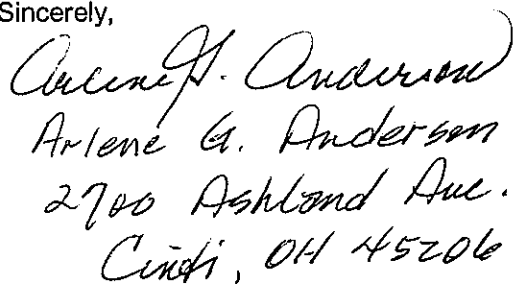 Sincerely,
Arlene G. Anderson
Arlene G. Anderson
2700 Ashland Ave.
Cinti, OH 45206